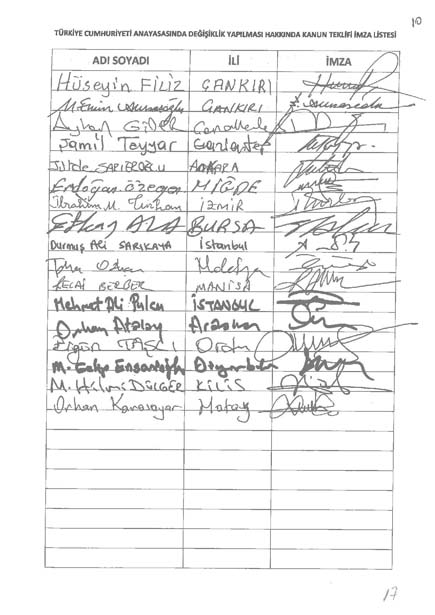 10
TÜRKİYE CUMHURİYETİ ANAYASASINDA DEĞİŞİKLİK YAPILMASI HAKKINDA KANUN TEKLİFİ İMZA LİSTESİ
ADI SOYADI İLİ İMZA
Hüseyin FİLİZ ÇANKIRI
M. Emin ÇANKIRI
Ayhan Çanakkale
Şamil Tayyar Gaziantep
Jülide SARIEROĞLU ANKARA
Erdoğan Özegen NİĞDE
İbrahim M. Turhan İZMİR
Efkan ALA BURSA
Durmuş Ali SARIKAYA İstanbul
Malatya
RECAİ BERBER MANİSA
Mehmet Ali Pulcu İSTANBUL
Orhan Atalay Ardahan
Ergün TAŞCI Ordu
M. Galip Ensarioğlu Diyarbakır
M. Hilmi DÜLGER KİLİS
Orhan Karasayar Hatay
17